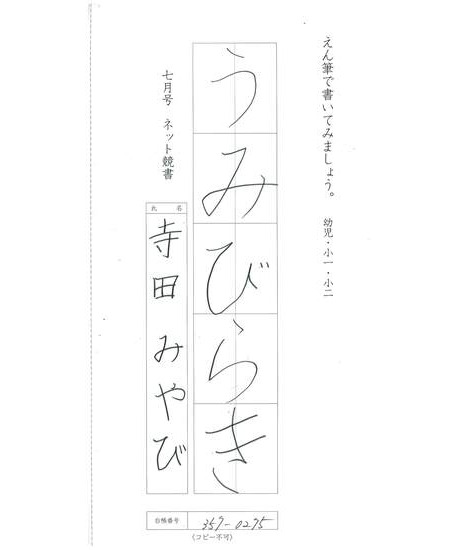 えん筆で書いてみましょう。 幼児・小一・小二
うみびらき
七月号 ネット競書
氏名
寺田 みやび
台帳番号 359-0295
(コピー不可)